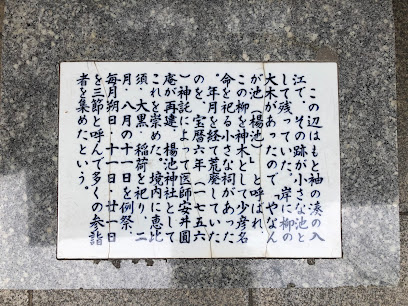 この辺はもと袖の湊の入
江で、その跡が小さな池と
して残っていた。岸に柳の
大木があったので「やなん
が池（楊池）」と呼ばれ、
この柳を神木として少彦名
命を祀る小さな祠があった
。年月を経て荒廃していた
のを、宝暦六年（一七五六
）神託によって医師安井圓
庵が再建、楊池神社として
これを崇めた。境内に恵比
須、大黒、稲荷を祀り、二
月、八月の十一日を例祭、
毎月朔日・十一日・廿一日
を三節と呼んで多くの参詣
者を集めたという。